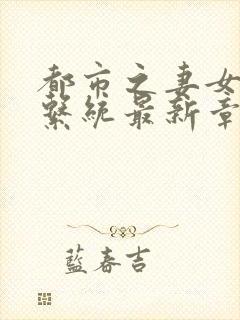 都市之妻女
繫統最新章
藍春吉